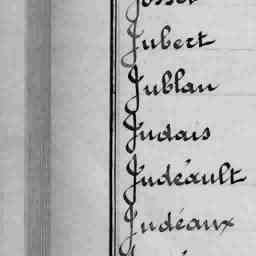 Josset
Jubert
Jublan
Judais
Judéault
Judéaux